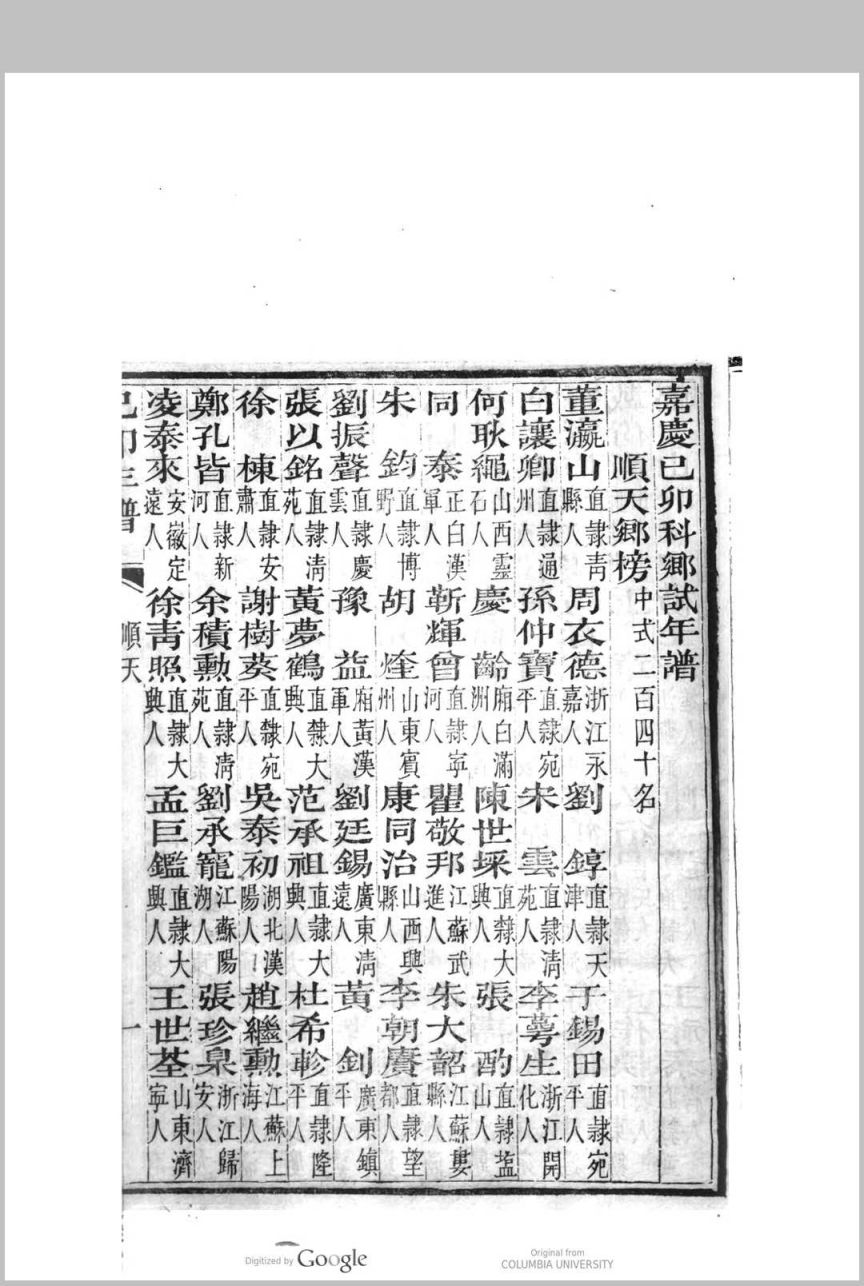 嘉慶己卯科鄉試年譜
順天鄉榜 中式二百四十名
董瀛山 直隸青縣人 周衣德 浙江永嘉人 劉錞 直隸天津人 于錫田 直隸宛平人
白讓卿 直隸通州人 孫仲寶 直隸宛平人 宋雲 直隸清苑人 李蕚生 浙江開化人
何耿繩 山西靈石人 慶齡 廂白滿洲人 陳世埰 直隸大興人 張酌 直隸塩山人
同泰 正白漢軍人 靳輝曾 直隸寧河人 瞿敬邦 江蘇武進人 朱大韶 江蘇婁縣人
朱鈞 直隸博野人 胡煃 山東賓州人 康同治 山西興縣人 李朝賡 直隸望都人
劉振聲 直隸慶雲人 豫益 廂黃漢軍人 劉廷錫 廣東清遠人 黃釗 廣東鎮平人
張以銘 直隸清苑人 黃夢鶴 直隸大興人 范承祖 直隸大興人 杜希軫 直隸隆平人
徐棟 直隸安肅人 謝樹葵 直隸宛平人 吳泰初 湖北漢陽人 趙繼勳 江蘇上海人
鄭孔皆 直隸新河人 余積勳 直隸清苑人 劉承寵 江蘇陽湖人 張珍臬 浙江歸安人
凌泰來 安徽定遠人 徐青照 直隸大興人 孟巨鑑 直隸大興人 王世荃 山東濟寧人
己卯年譜 順天 一
Digitized by Google
Original from
COLUMBIA UNIVERSITY